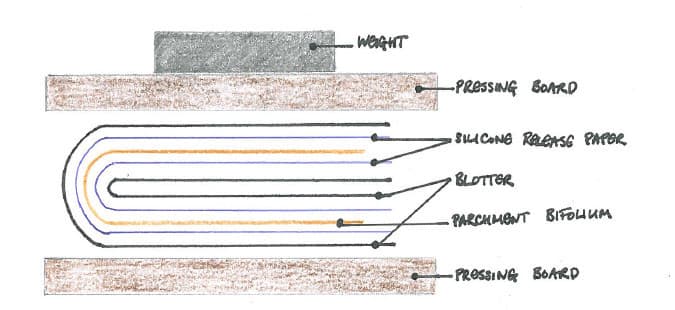 WEIGHT
PRESSING BOARD
SILICONE RELEASE PAPER
BLOTTER
PARCHMENT BIFOLIUM
PRESSING BOARD